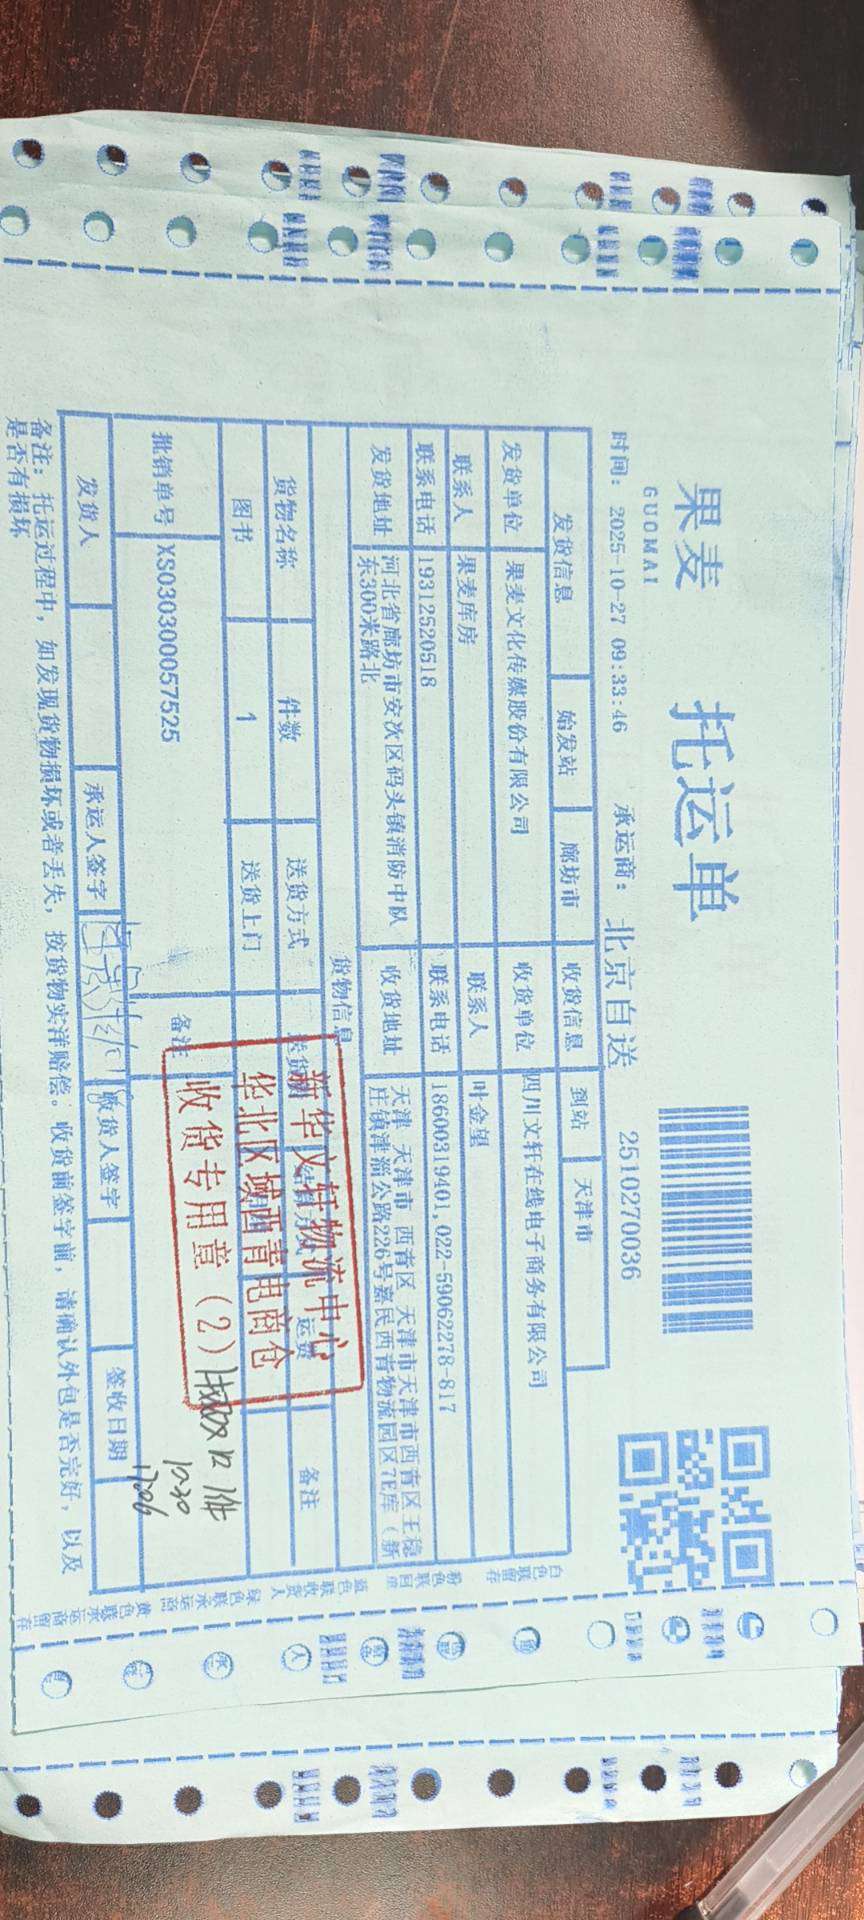 果麦 托运单
GUOMAI
时间: 2025-10-27 09:33:46 承运商: 北京自送 2510270036
发货信息 始发站 廊坊市 收货信息 到站 天津市
发货单位 果麦文化传媒股份有限公司 收货单位 四川文轩在线电子商务有限公司
联系人 果麦库房 联系人 叶金望
联系电话 19312520518 联系电话 18600319401,022-59062278-817
发货地址 河北省廊坊市安次区码头镇消防中队 收货地址 天津 天津市 西青区 天津市天津市西青区王稳
东300米路北 庄镇津淄公路226号嘉民西青物流园区7E库（新
货物信息
货物名称 件数 送货方式 运费 备注
图书 1 送货上门
批销单号 XS030300057525 备注
发货人 承运人签字 收货人签字 签收日期
备注: 托运过程中，如发现货物损坏或者丢失，按货物实洋赔偿。收货前签字前，请确认外包是否完好，以及
是否有损坏
新华文轩物流中心
华北区域西青电商仓
收货专用章（2）
白色联留存
粉色联回单
蓝色联收货人
绿色联承运商
黄色联承运商留存